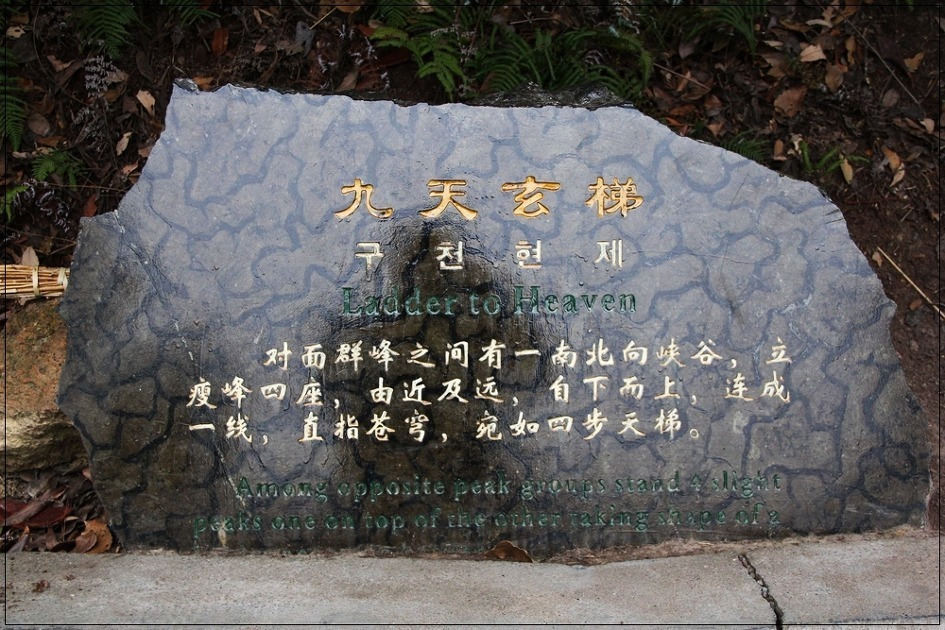 九天玄梯
구천현제
Ladder to Heaven
对面群峰之间有一南北向峡谷，立
瘦峰四座，由近及远，自下而上，连成
一线，直指苍穹，宛如四步天梯。
Among opposite peak groups stand 4 slight
peaks one on top of the other taking shape of a